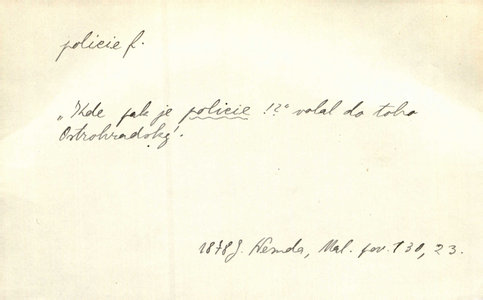 policie f.
„Kde pak je policie !?“ volal do toho
Ostrohradský.
1878 J. Herda, Mal. pov. 130, 23.